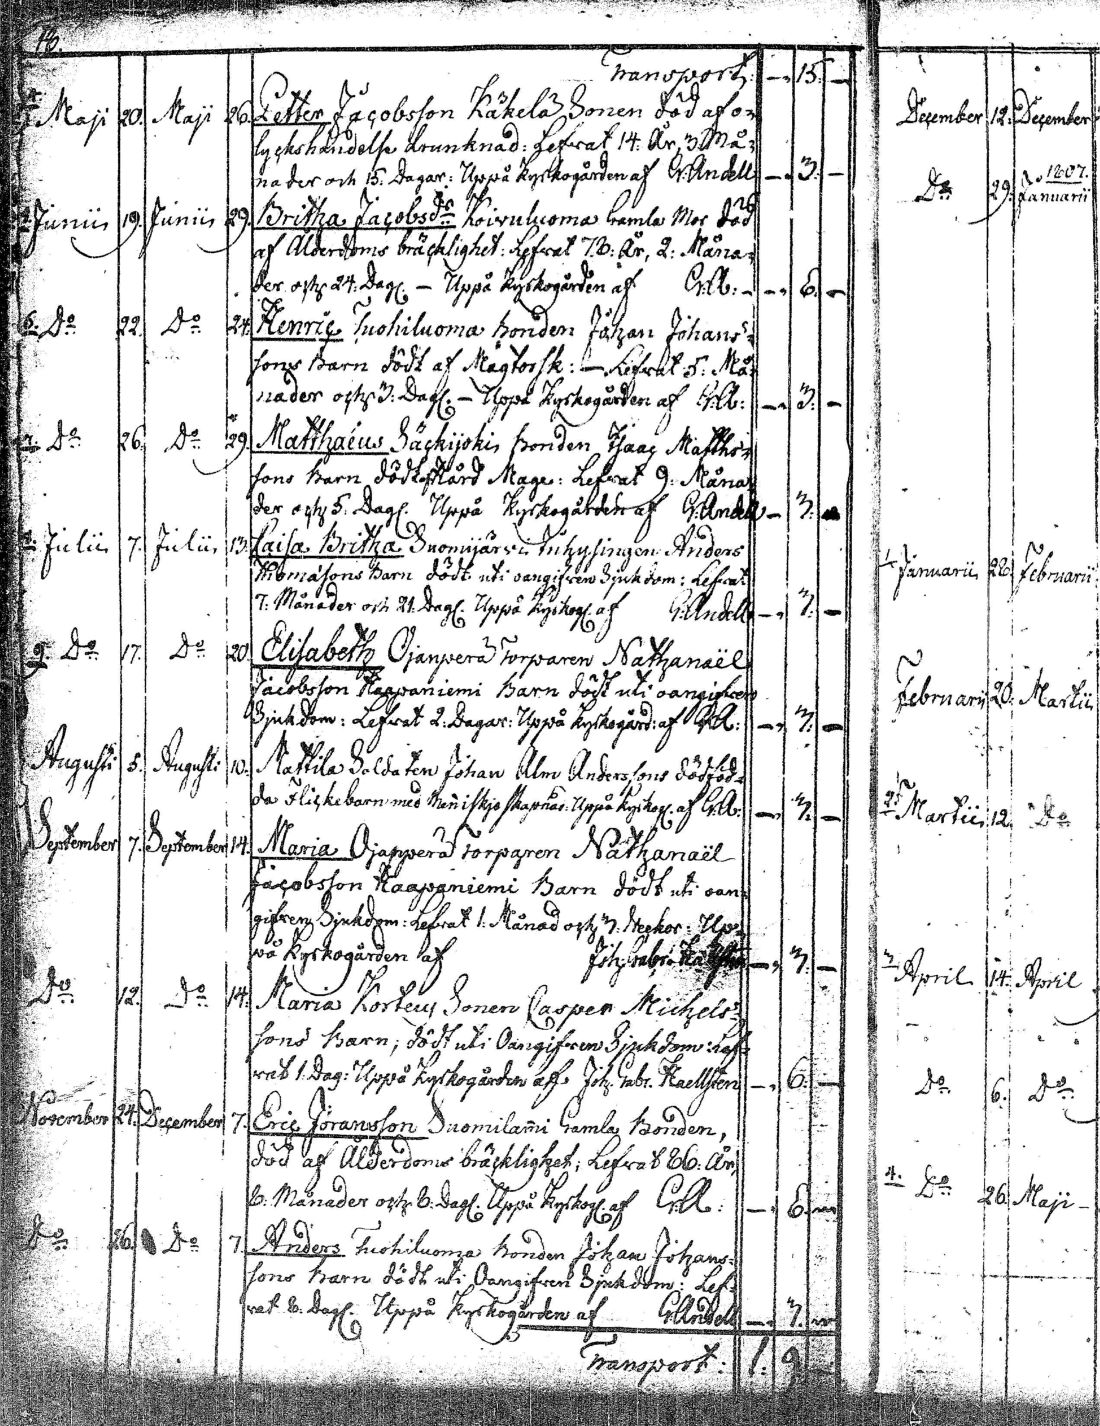 Transport: —. 15. —
Maji 20. Maji 26. Petter Jacobsson Käkelä Sonen död af o-
lyckshändelse drunknad: Lefvat 14: År, 3 Må-
nader och 15. Dagar: Uppå Kyrkogården af G: Andell —. 3. —
Junii 19. Junii 29. Britha Jacobsdr Koivuluoma Gamla Mor död
af Ålderdoms bräcklighet: Lefvat 78: År, 2: Måna-
der och 24: Dag. — Uppå Kyrkogården af G:A: —. 6. —
6. Do 22. Do 24. Henric Tuohiluoma bonden Johan Johans-
sons Barn dödt af Magtorsk: — Lefvat 5: Må-
nader och 3: Dag. — Uppå Kyrkogården af G:A: —. 3. —
7. Do 26. Do 29. Matthaeus Säckijoki bonden Isaac Matths-
sons Barn dödt af Hård Mage: Lefvat 9: Måna-
der och 5: Dag. Uppå Kyrkogården af G: Andell —. 3.
Julii 7. Julii 13. Caisa Britha Suomijärvi Inhysingen Anders
Thomasons Barn dödt uti oangifven Sjukdom: Lefvat
7: Månader och 21. Dag. Uppå Kyrkog. af G: Andell —. 3. —
9. Do 17. Do 20. Elisabeth Ojanperä Torparen Nathanaël
Jacobsson Haapaniemi Barn dödt uti oangifven
Sjukdom: Lefvat 2: Dagar: Uppå Kyrkogård: af G:A: —. 3. —
Augusti 5. Augusti 10. Mattila Soldaten Johan Alm Anderssons dödföd-
da Flickebarn med Människjoskapnad: Uppå Kyrkog. af G:A: —. 3. —
September 7. September 14. Maria Ojanperä Torparen Nathanaël
Jacobsson Haapaniemi Barn dödt uti oan-
gifven Sjukdom: Lefvat 1: Månad och 3: Veckor: Up-
på Kyrkogården af Joh: Gabr: —. 3. —
Do 12. Do 14. Maria Korteus Sonen Casper Michels-
sons Barn, dödt uti Oangifven Sjukdom: Lef-
vat 1 Dag: Uppå Kyrkogården aff Joh: Gabr. Kaellsten —. 6. —
November 24. December 7. Eric Jöransson Suomilammi Gamla Bonden,
död af Ålderdoms bräcklighet; Lefvat 86: År,
8. Månader och 8. Dag. Uppå Kyrkog. af G:A: —. 6.
Do 26. Do 7. Anders Tuohiluoma bonden Johan Johans-
sons Barn dödt uti Oangifven Sjukdom: Lef-
vat 8: Dag. Uppå Kyrkogården af G: Andell —. 3.
Transport: 1. 9. —
December 12. December
Do 29. 1807. Januarii
1 Januarii 28. Februarii
Februarii 20. Martii
2. Martii 12. Do
3. April 14. April
Do 6. Do
4. Do 26. Maji